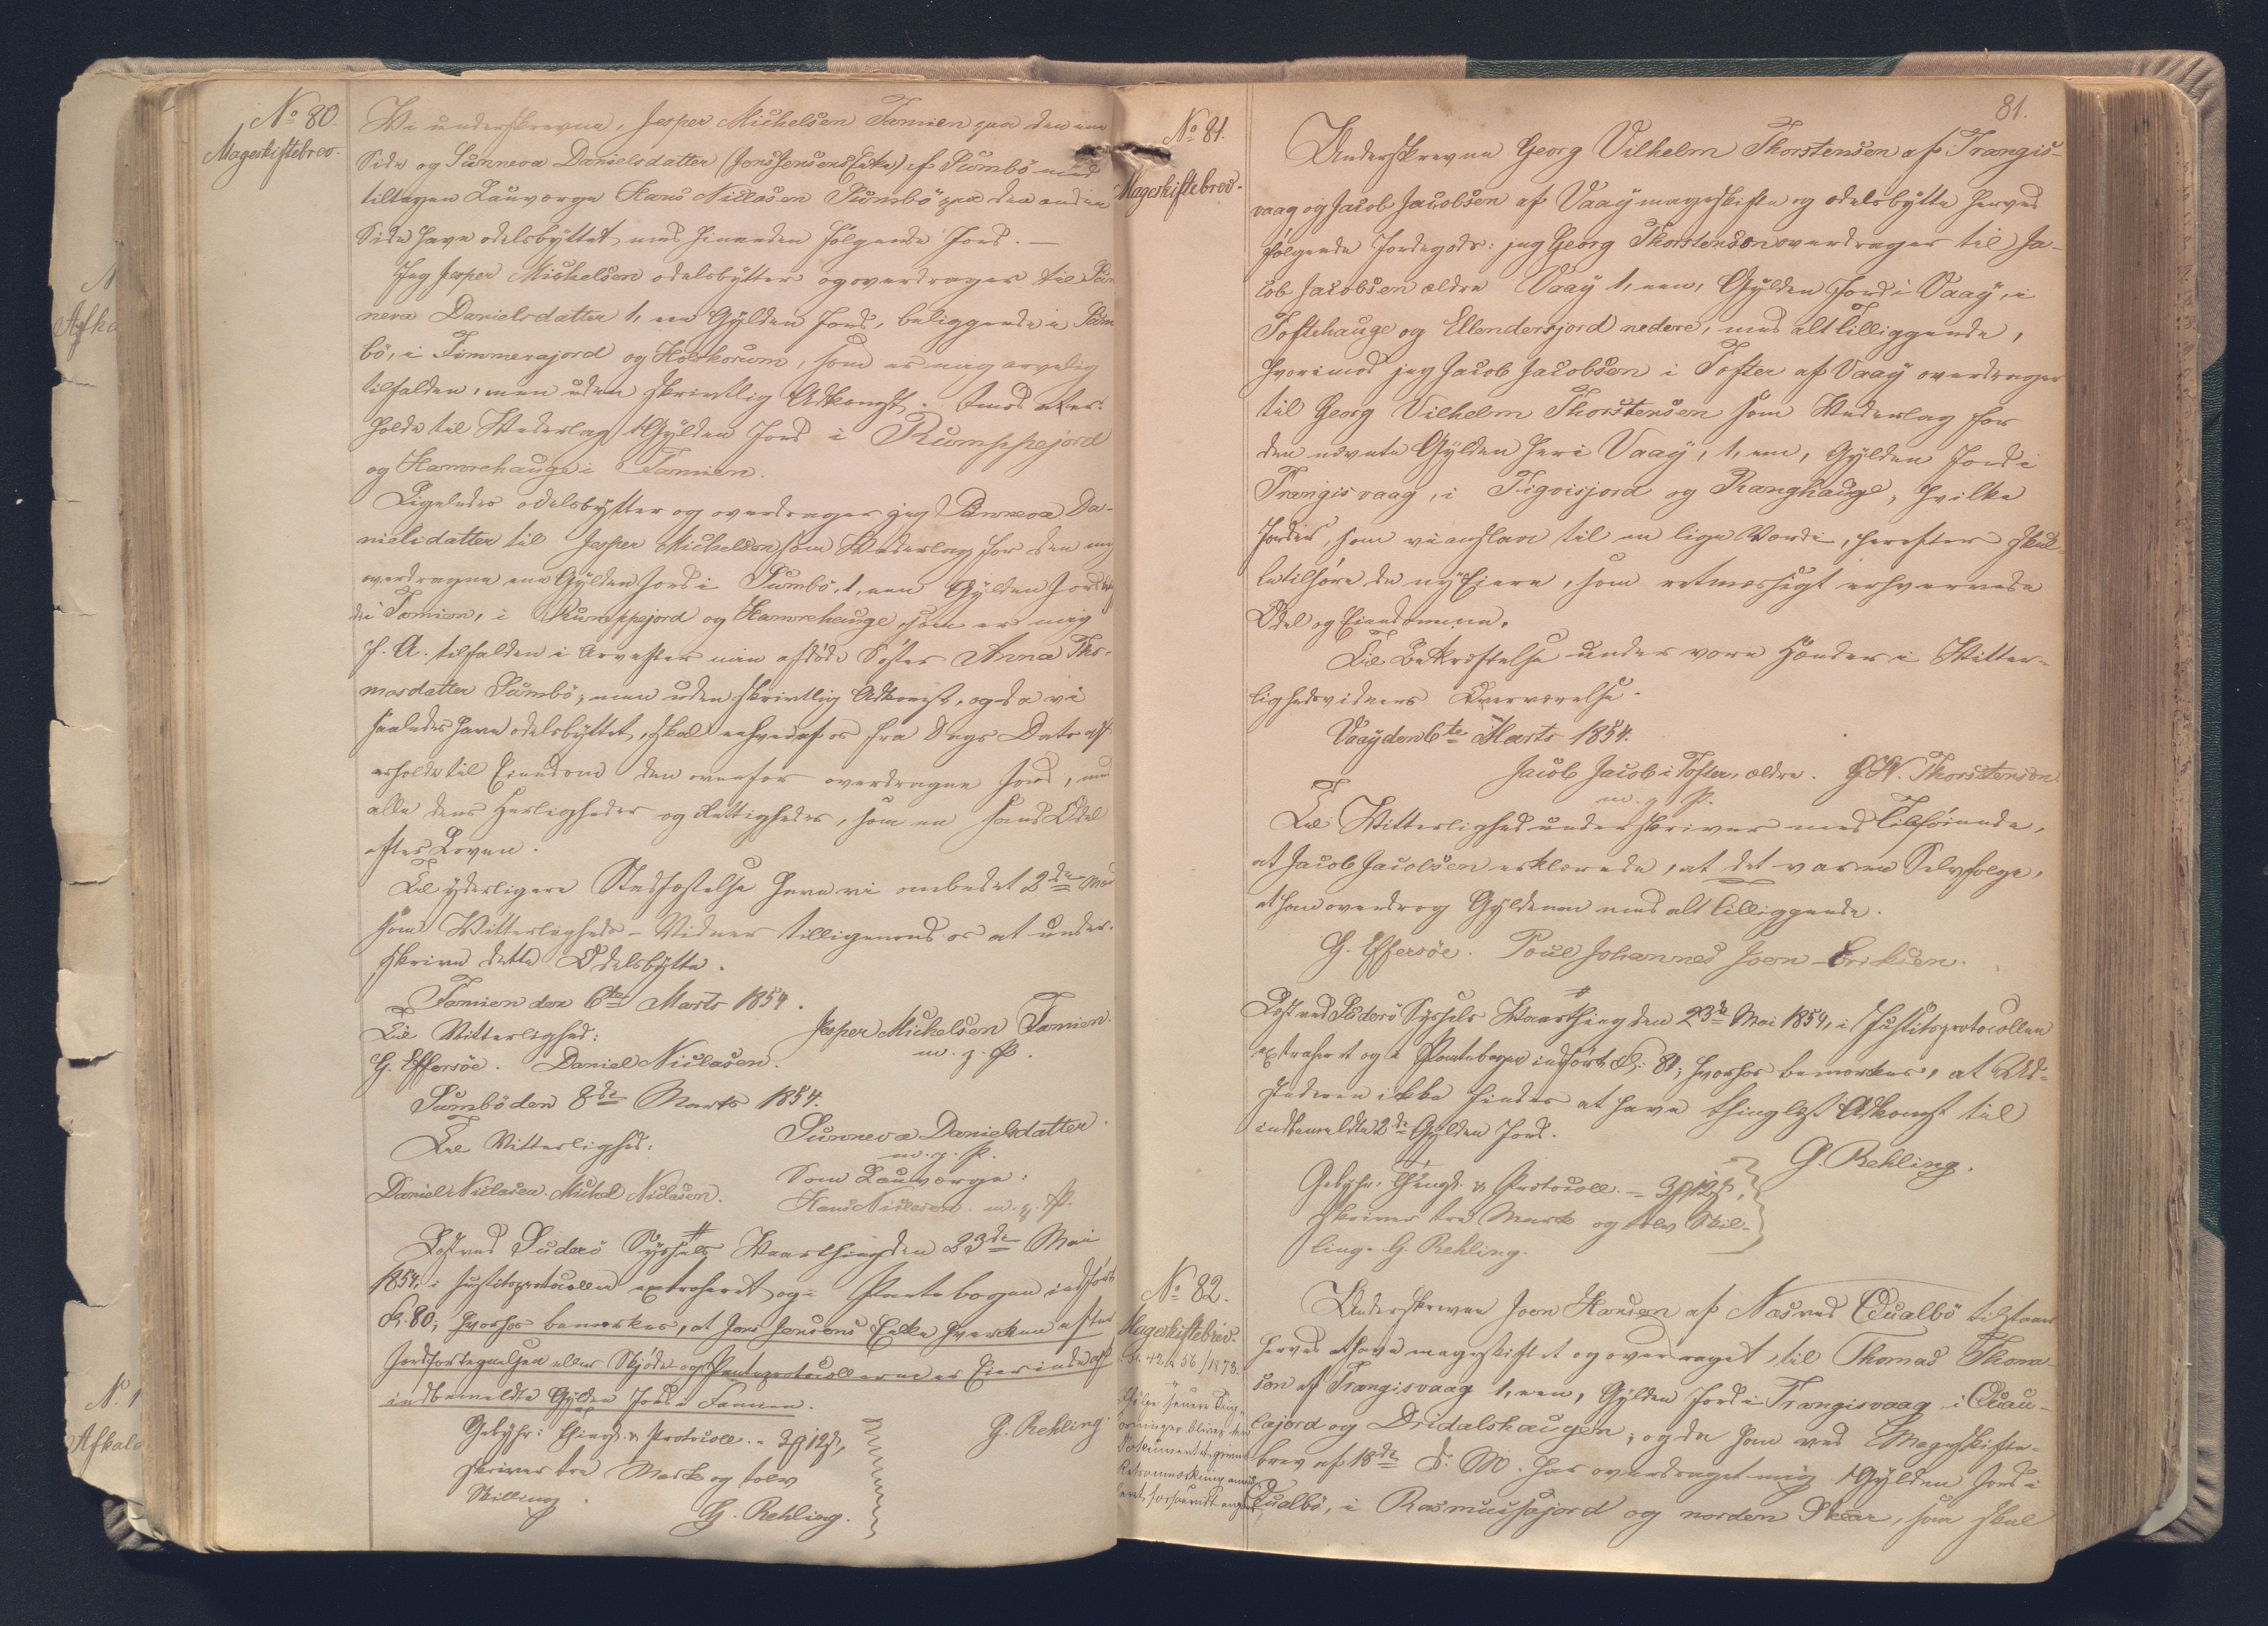 No 80.
Mageskiftebrev.
Vi underskrevne, Jesper Michelsen Famien paa den ene
Side og Sunneva Danielsdatter (Jens Jensens Enke) af Sumbö med
tiltagen Lauværge Hans Niclasen Sumbö paa den anden
Side have odelsbyttet med hinanden følgende Jord. —
Jeg Jesper Michelsen odelsbytter og overdrager til Sun
neva Danielsdatter 1, een Gylden Jord, beliggende i Sum
bö, i Timmerajord og Horskorum, som er mig arvelig
tilfalden, men uden skrivtlig Adkomst. Imod at er-
holde til Vederlag 1 Gylden Jord i Rumppejord
og Hamrehauge i Famien.
Ligeledes odelsbytter og overdrager jeg Sunneva Da-
nielsdatter til Jesper Michelsen som Vederlag for den mig
overdragne ene Gylden Jord i Sumbö, 1, een Gylden Jord
i Famien, i Rumppejord og Hamrehauge, som er mig
f. A. tilfalden i Arv efter min afdøde Søster Anna Tho-
masdatter Sumbö; men uden skrivtlig Adkomst, og da vi
saaledes have odelsbyttet, skal enhver af os fra Dags Dato af
erholde til Eiendom den ovenfor overdragne Jord, med
alle dens Herligheder og Rettigheder, som en sand Odel
efter Loven.
Til yderligere Stadfæstelse have vi ombedet 2de Mænd
som Vitterligheds-Vidner tilligemed os at under-
skrive dette Odelsbytte.
Famien den 6te Marts 1854.
Til Vitterlighed: Jesper Michelsen Famien.
G. Effersöe. Daniel Niclasen. m. f. P.
Sumbö den 8de Marts 1854.
Til Vitterlighed: Sunneva Danielsdatter.
m. f. P.
Daniel Niclasen. Michel Niclasen. Som Lauværge:
Hans Niclasen. m. f. P.
Læst ved Suderö Syssels Vaarthing den 23de Mai
1854, i Justitsprotocollen extraheret og i Pantebogen indført
Fol. 80; hvorhos bemærkes, at Jens Jensens Enke hverken efter
Jordfortegnelsen eller Skjøde- og Panteprotocollerne er Eierinde af
indbemeldte Gylden Jord i Famien.
G. Rehling.
Gebyhr: Thingl. & Protocoll. = 3 12 ,
skriver tre Mark og tolv
Skilling.
G. Rehling.
81.
No 81.
Mageskiftebrev.
Underskrevne Georg Vilhelm Thorstensen af Trangis-
vaag og Jacob Jacobsen af Vaay mageskifte og odelsbytte herved
følgende Jordegods: jeg Georg Thorstenson overdrager til Ja-
cob Jacobsen ældre Vaay 1, een, Gylden Jord i Vaay, i
Toftehauge og Ellendersjord nedere, med alt Tilliggende,
hvorimod jeg Jacob Jacobsen i Tofter af Vaay overdrager
til Georg Vilhelm Thorstensen som Vederlag for
den nævnte Gylden her i Vaay, 1, een, Gylden Jord i
Trangisvaag, i Tigvisjord og Ranghauge, hvilke
Jorder, som vi anslaae til en lige Værdi, herefter skul-
le tilhøre de nye Eiere, som retmæssigt erhvervede
Odel og Eiendomme.
Til Bekræftelse under vore Hænder i Vitter-
lighedsvidners Overværelse.
Vaay den 6te Marts 1854.
Jacob Jacob i Tofter, ældre. G. W. Thorstenson
m. f. P.
Til Vitterlighed underskriver med Tilføiende,
at Jacob Jacobsen erklærede, at det var en Selvfølge,
at han overdrog Gylden med alt Tilliggende.
G. Effersöe. Poul Johannes Joen Eriksen.
Læst ved Suderö Syssels Vaarthing den 23de Mai 1854, i Justitsprotocollen
extraheret og i Pantebogen indført Fol. 80; hvorhos bemærkes, at Ud-
stederen ikke findes at have thinglæst Adkomst til
indbemeldte 2de Gylden Jord.
G. Rehling.
Gebyhr: Thingl. & Protocoll. = 3 12 ,
skriver tre Mark og tolv Skil-
ling. G. Rehling.
No 82.
Mageskiftebrev.
42 56/1878.
Underskrevne Joen Hansen af Næs ved Qualbö tilstaaer
herved at have mageskiftet og overdraget til Thomas Thom-
sen af Trangisvaag 1, een, Gylden Jord i Trangisvaag, i Quau-
lajord og Dridalshaugen; og da han ved Mageskifte-
brev af 18de d. M. har overdraget mig 1 Gylden Jord i
Qualbö, i Rasmussajord og norden Skar, som skal